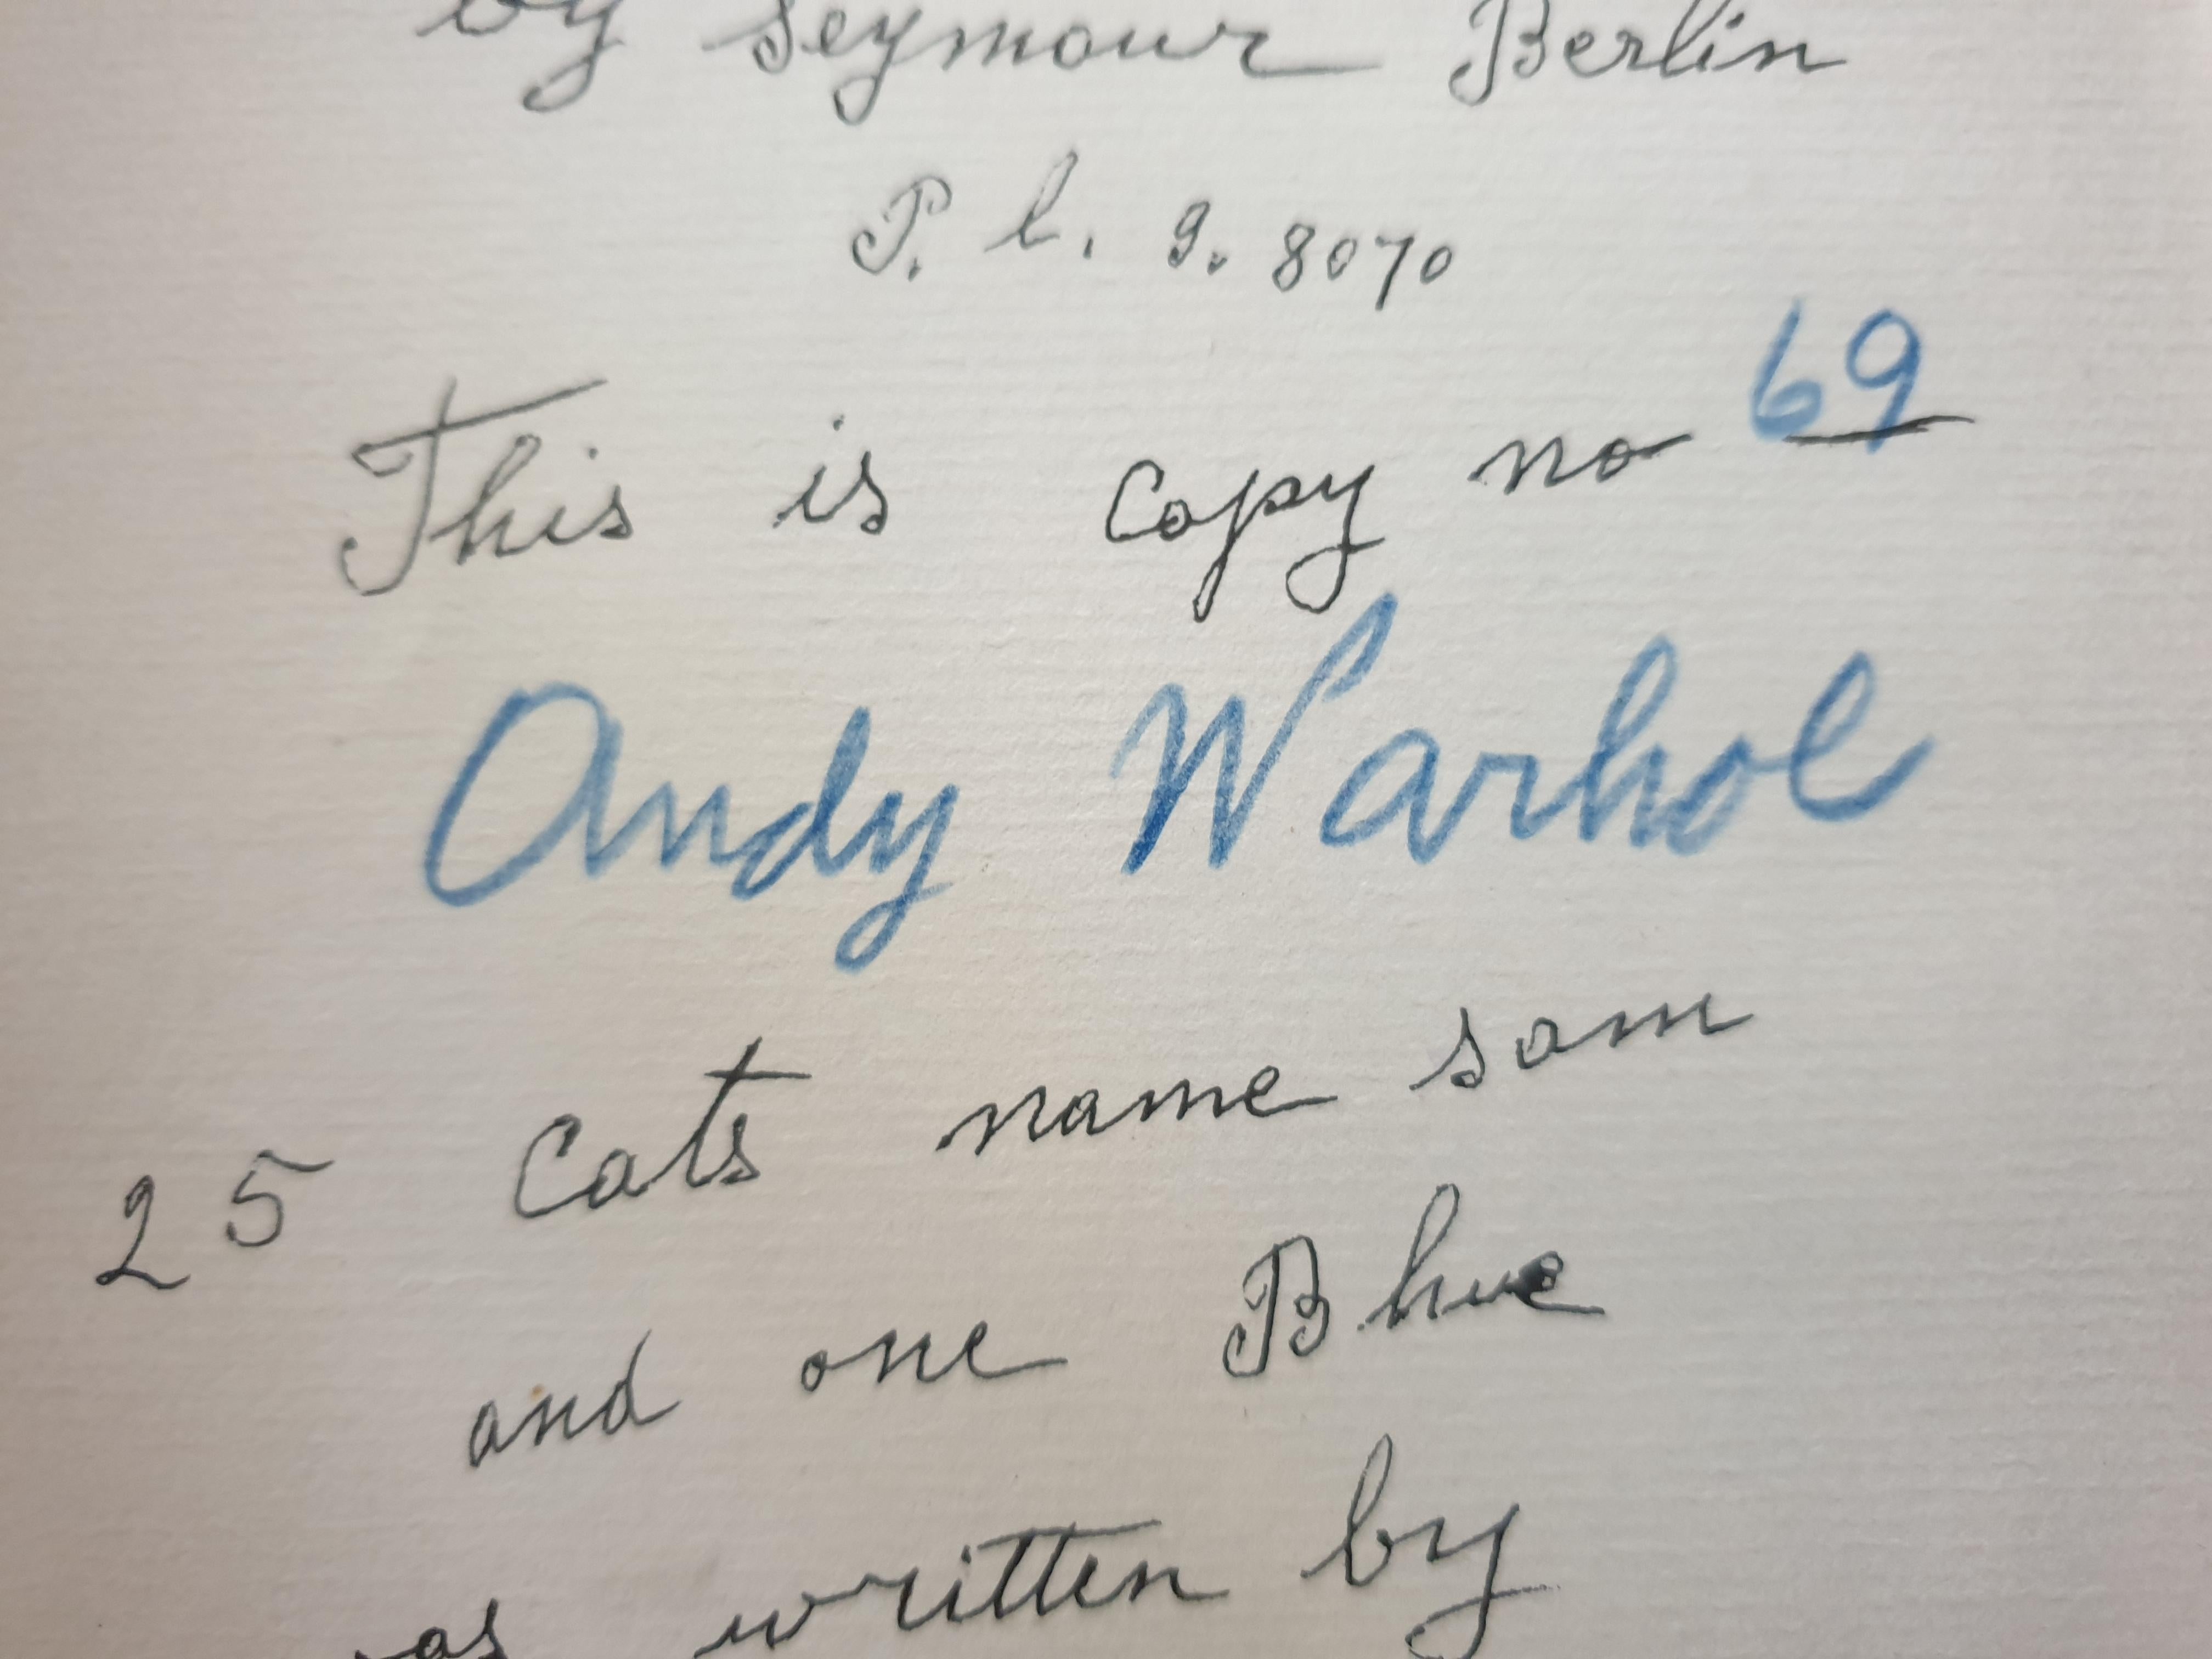 by Seymour Berlin
P. l. 9. 8070
This is Copy no 69
Andy Warhol
25 Cats name sam
and one Blue
was written by